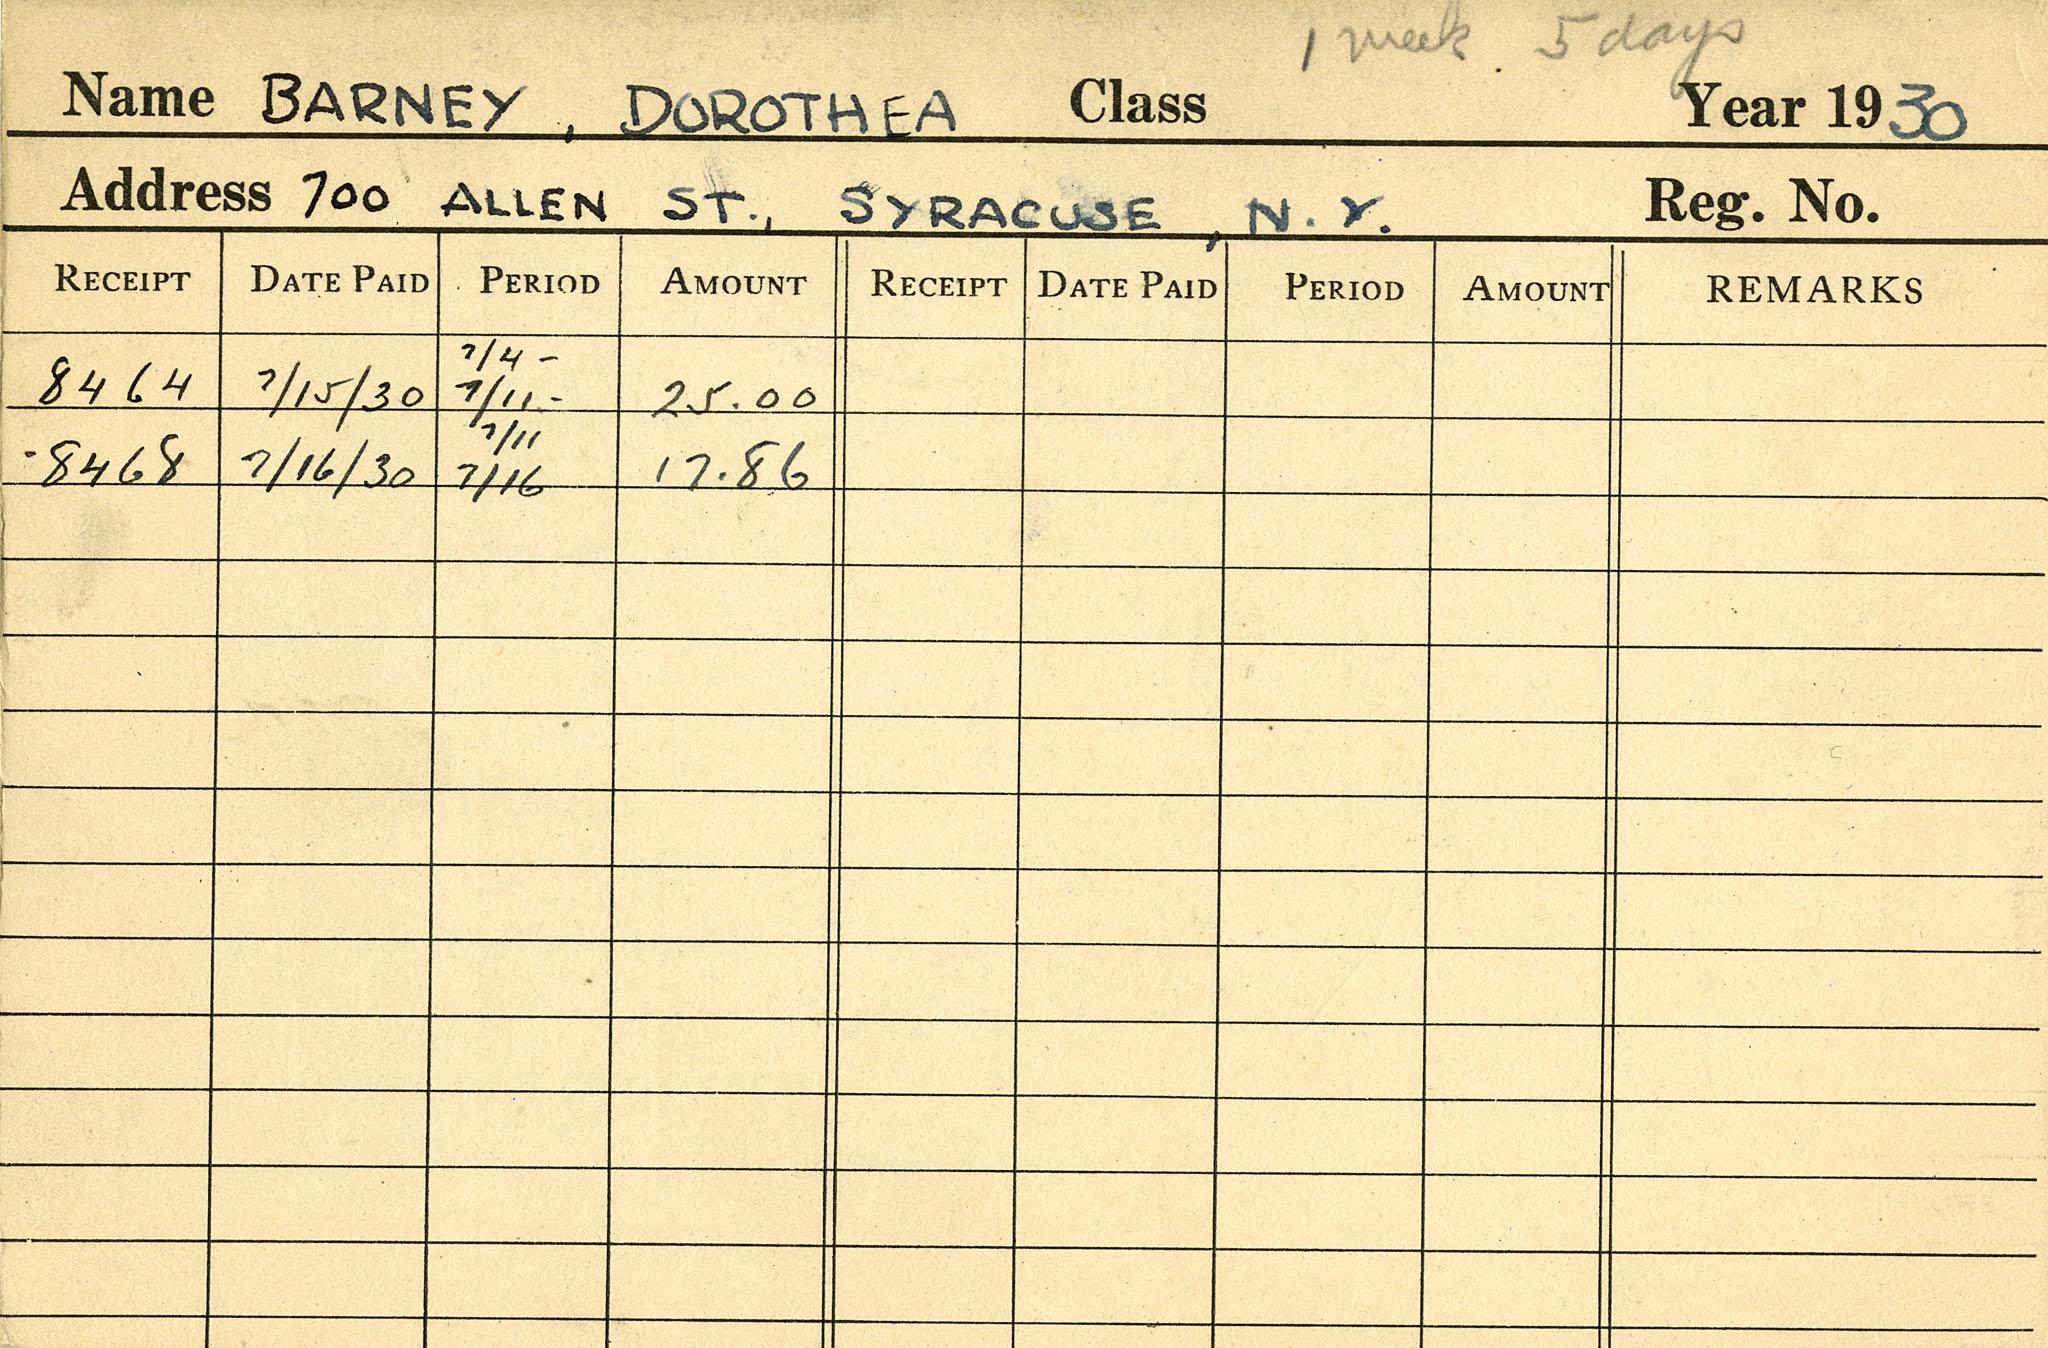 1 week 5 days
Name BARNEY, DOROTHEA Class Year 1930
Address 700 ALLEN ST., SYRACUSE, N.Y. Reg. No.
RECEIPT DATE PAID PERIOD AMOUNT RECEIPT DATE PAID PERIOD AMOUNT REMARKS
7/4 -
8464 7/15/30 7/11 - 25.00
7/11
8468 7/16/30 7/16 17.86